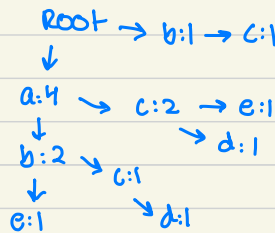 Root → b:1 → c:1
a:4 → c:2 → e:1
d:1
b:2 → c:1
e:1 → d:1